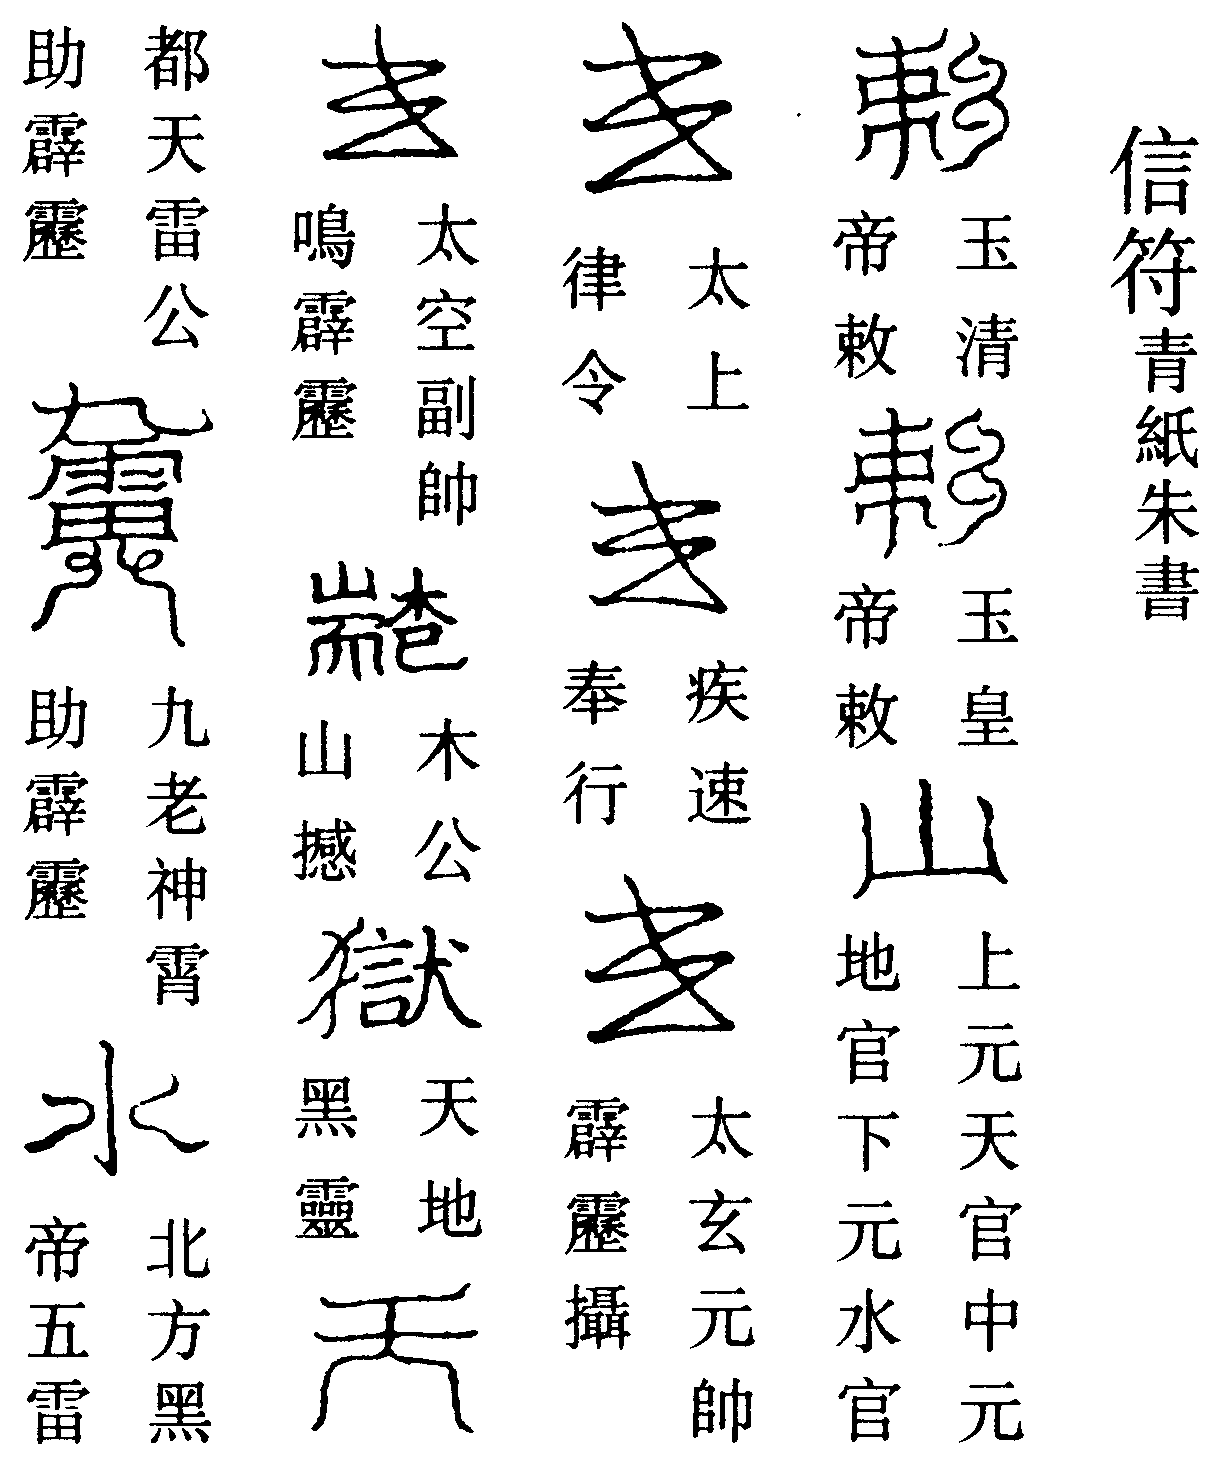 信符青紙朱書
玉清
帝敕
玉皇
帝敕
山
上元天官中元
地官下元水官
太上
律令
疾速
奉行
太玄元帥
霹靂攝
太空副帥
鳴霹靂
木公
山撼
獄
天地
黑靈
天
都天雷公
助霹靂
九老神霄
助霹靂
水
北方黑
帝五雷